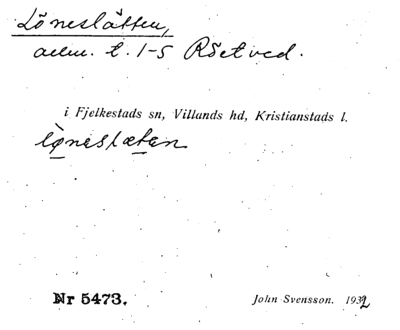 Löneslätten,
allm. t. 1-5 Röetved.
i Fjelkestads sn, Villands hd, Kristianstads l.
lø̀neslætan
Nr 5473.
John Svensson. 1932